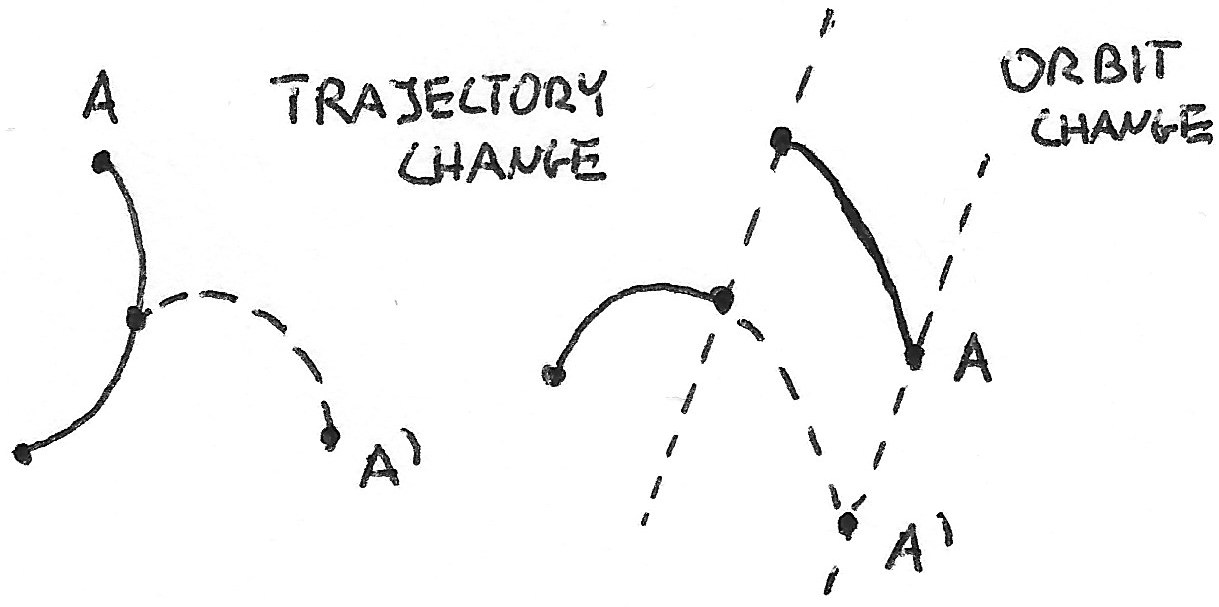 A
TRAJECTORY
CHANGE
A'
ORBIT
CHANGE
A
A'